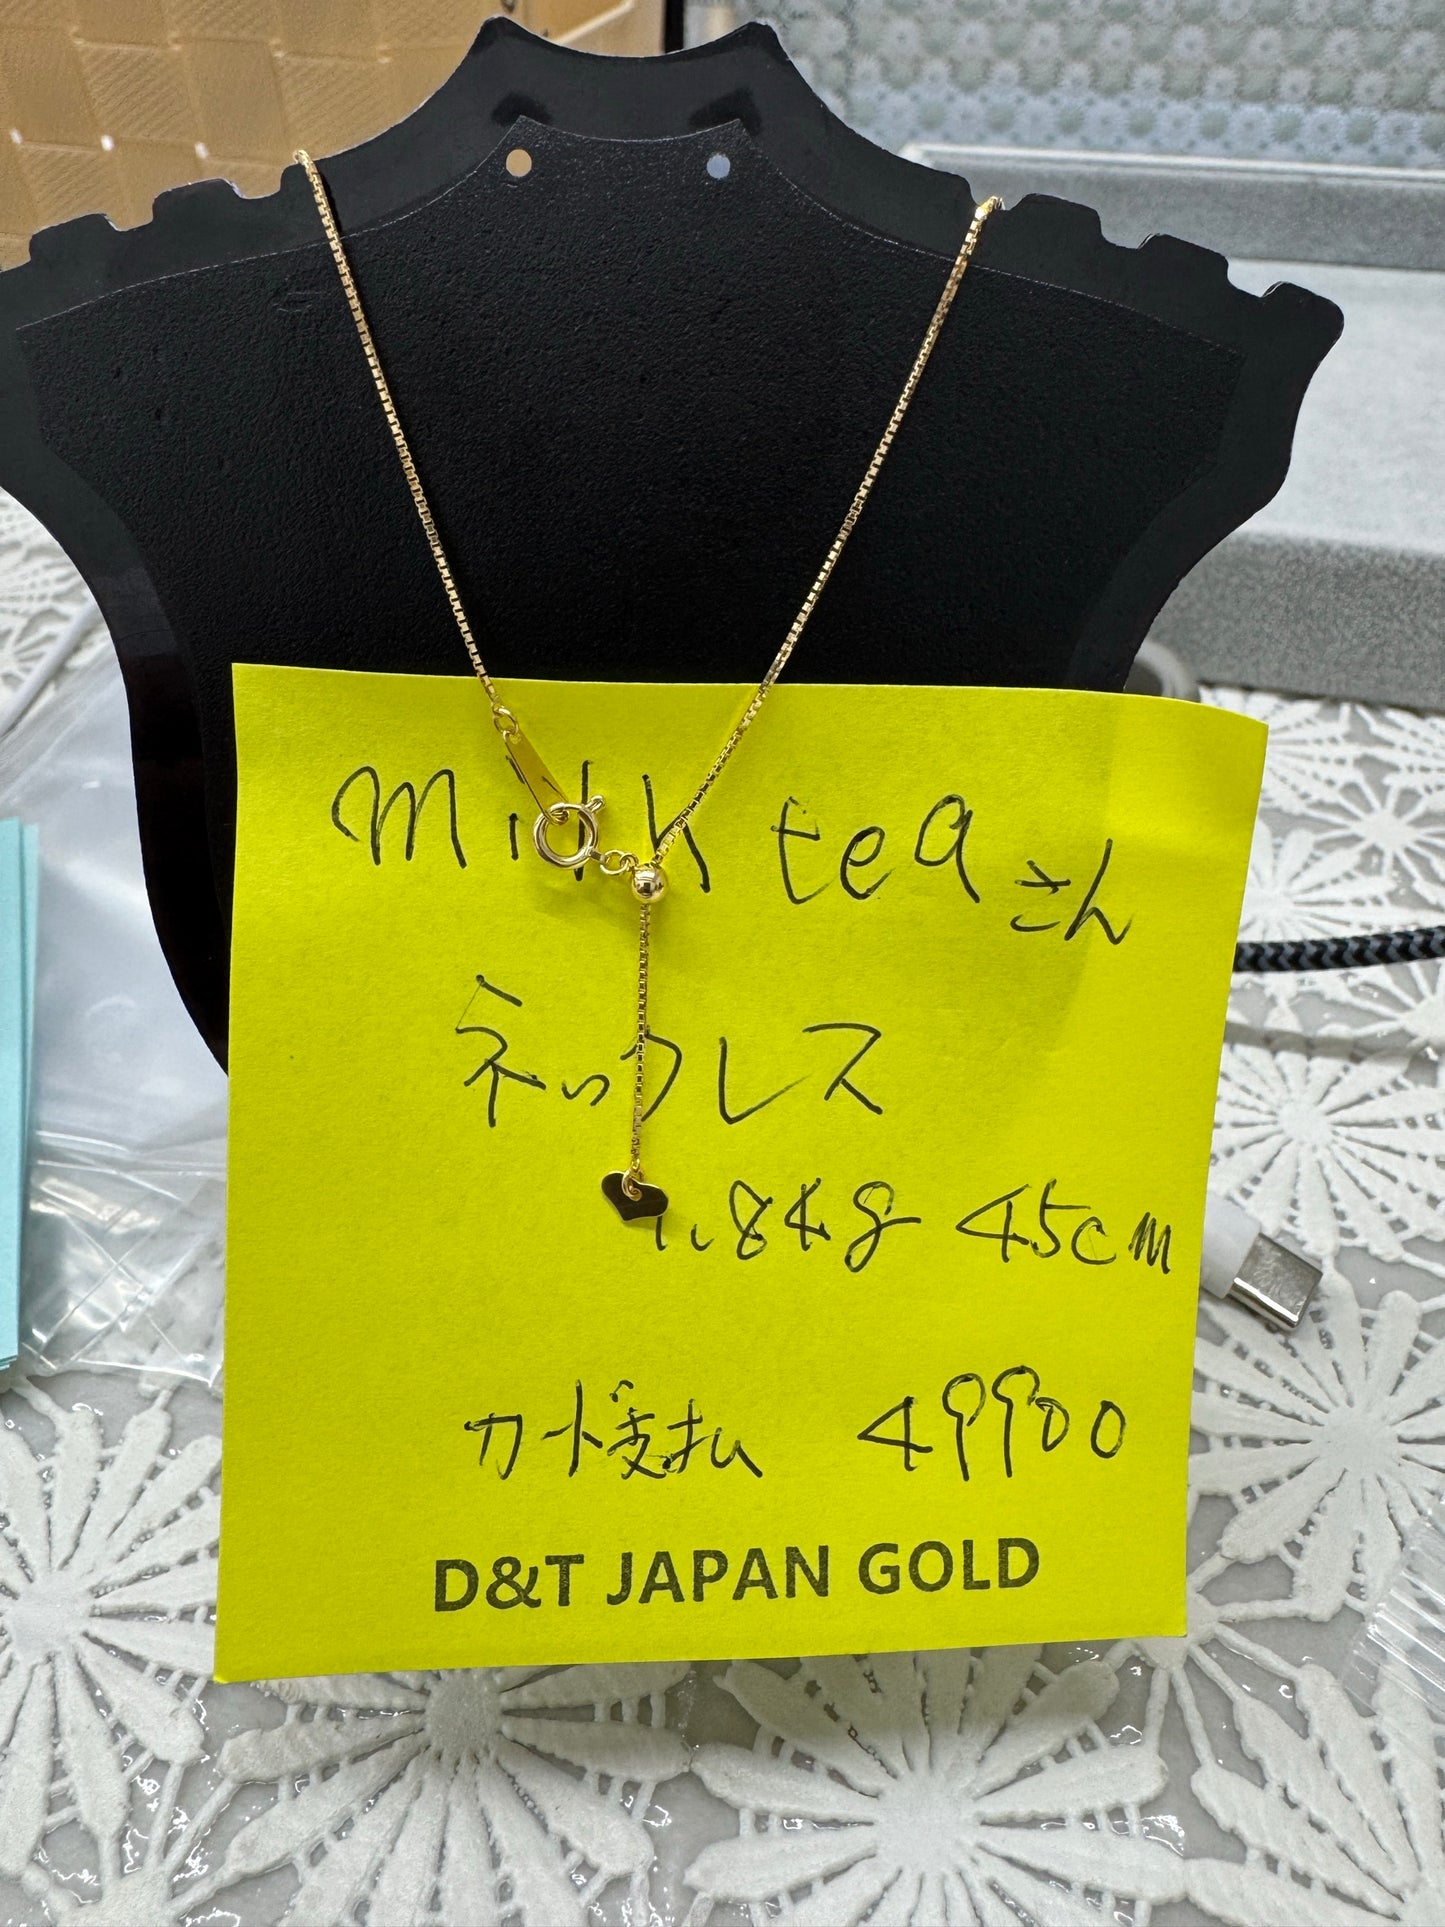 milk teaさん
ネックレス
1.84g 45cm
カード支払 49900
D&T JAPAN GOLD